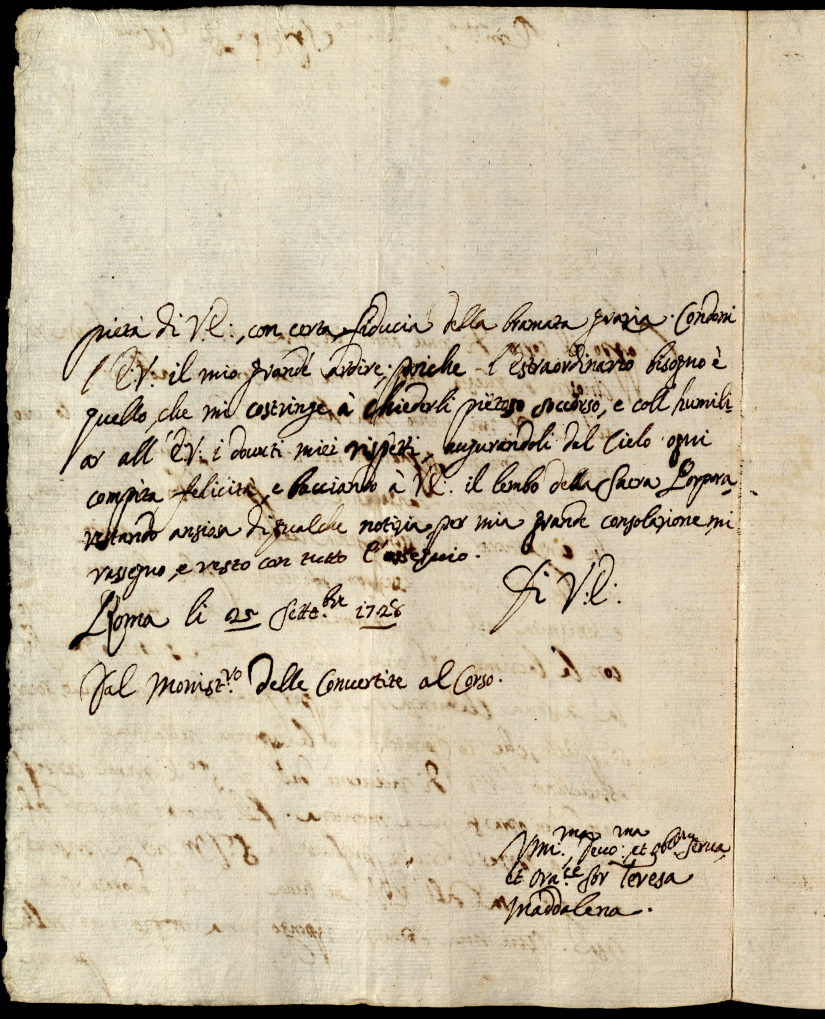 pietà di V.E:, con certa fiducia della bramata grazia. Condoni
l'E:V: il mio grande ardire; poiche l'estraordinario bisogno è
quello, che mi costringe à chiederli pietoso soccorso, e coll'humili
ar all'E:V: i douuti miei rispetti, augurandoli dal Cielo ogni
compita felicità, e bacciando à V.E. il lembo della Sacra Porpora,
restando ansiosa di qualche notizia, per mia grande consolazione, mi
rassegno, e resto con tutto l'ossequio.
Di V:E:
Roma li 25 Sette.bre 1728
Dal Monist.ro delle Conuertite al Corso.
Vmi.ma, Deuo:ma et obb.ma serua,
et Ora.ce Sor Teresa
Maddalena.